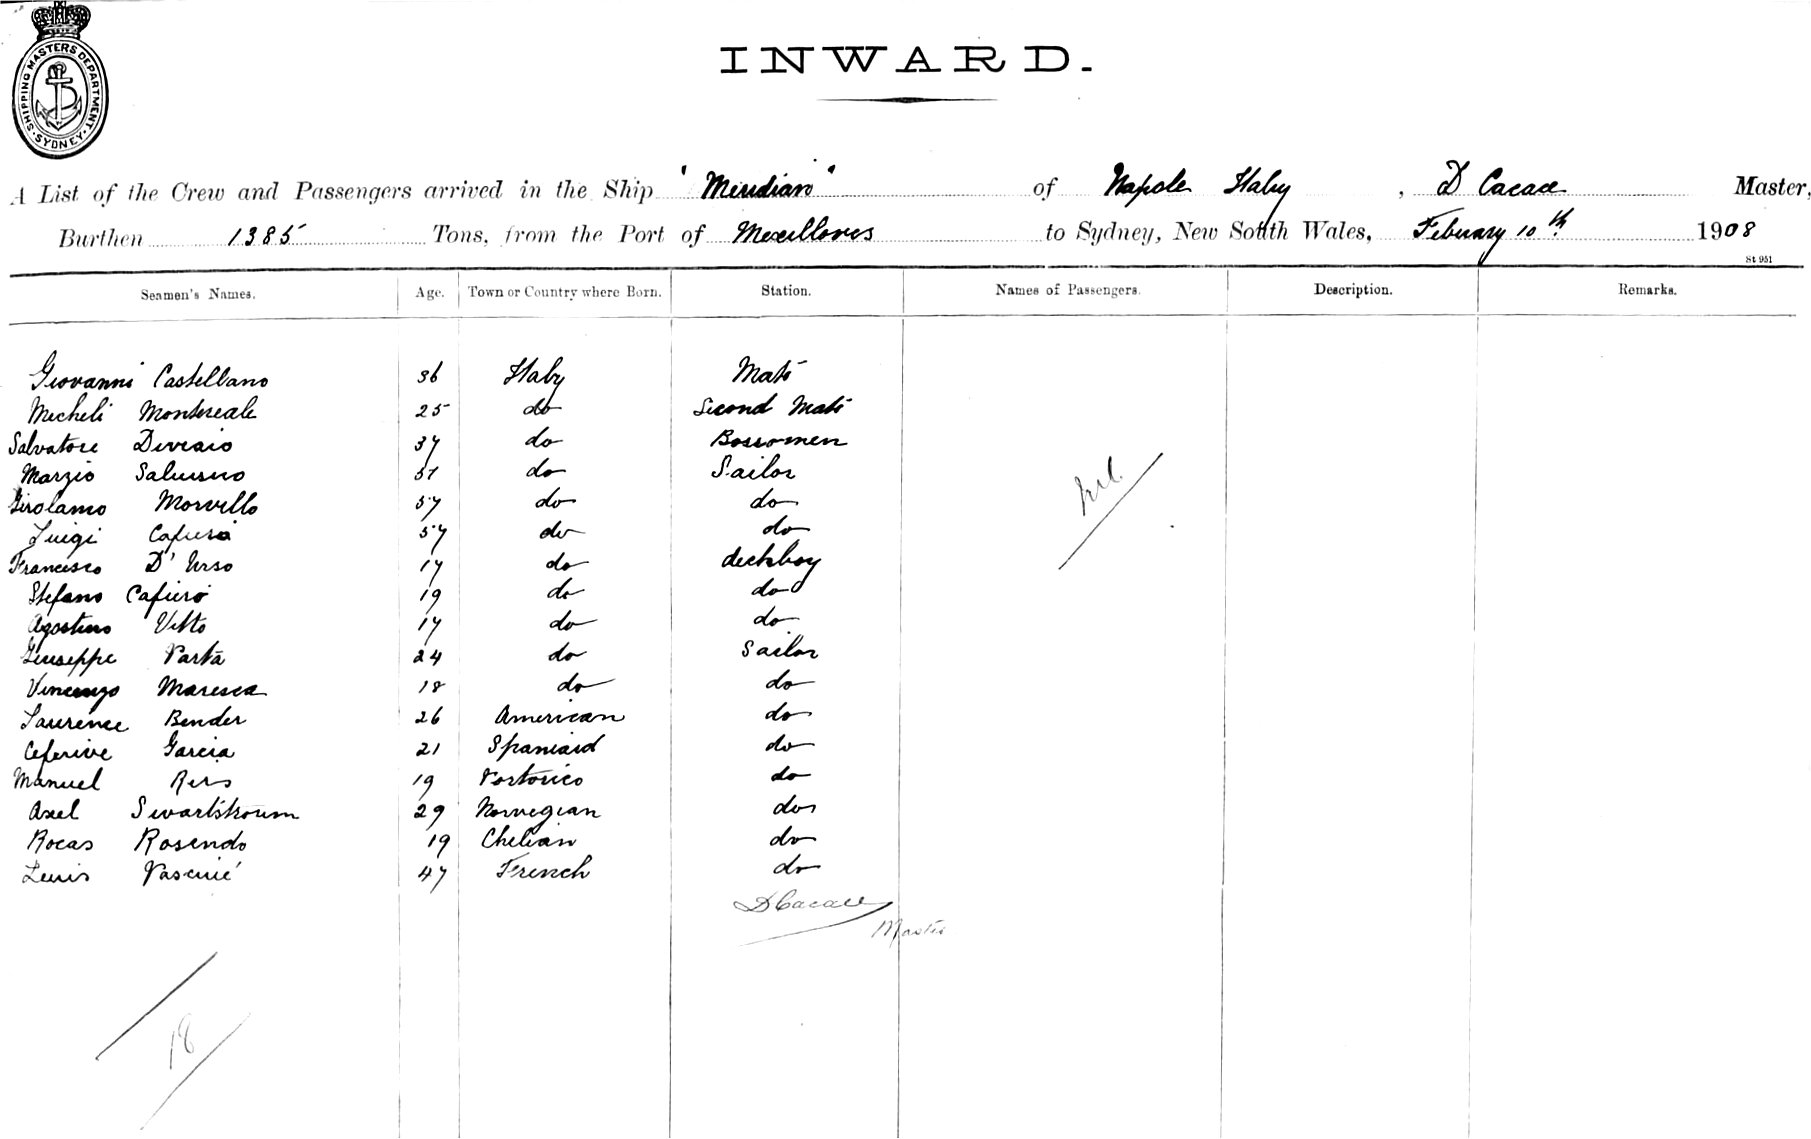 SHIPPING MASTERS DEPARTMENT. SYDNEY.
INWARD.
A List of the Crew and Passengers arrived in the Ship "Meridian" of Napole Italy, D Cacace Master,
Burthen 1385 Tons, from the Port of Mexellones to Sydney, New South Wales, Febuary 10th. 1908
St 951
Seamen's Names. Age. Town or Country where Born. Station. Names of Passengers. Description. Remarks.
Giovanni Castellano 36 Italy Mate
Micheli Montereale 25 do Second Mate
Salvatore 37 do Bossomen
Marzio 51 do Sailor
Nil.
Girolamo Morvillo 57 do do
Luigi Cafiero 57 do do
Francesco D'Urso 17 do deckboy
Stefano Cafiero 19 do do
Agostino Vitto 17 do do
Giuseppe Parta 24 do Sailor
Vincenzo Maresca 18 do do
Laurence Bender 26 American do
Ceferive Garcia 21 Spaniard do
Manuel 19 Portorico do
Axel Swartstroum 29 Norwegian do
Rocas Rosendo 19 Chelian do
Luis 47 French do
D Cacace
Master
18